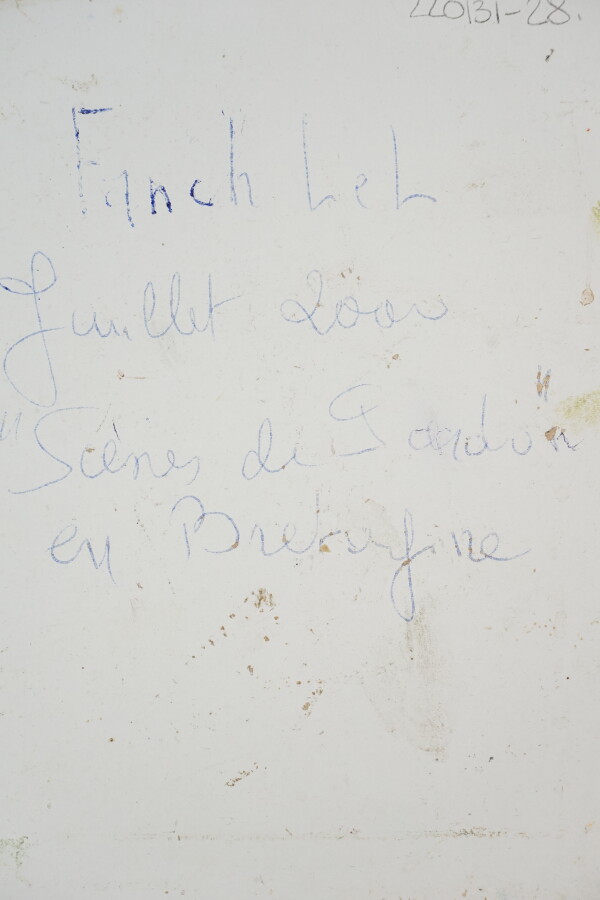 220131-28.
Fanch Lel
Juillet 2000
"Scènes de Pardon"
en Bretagne